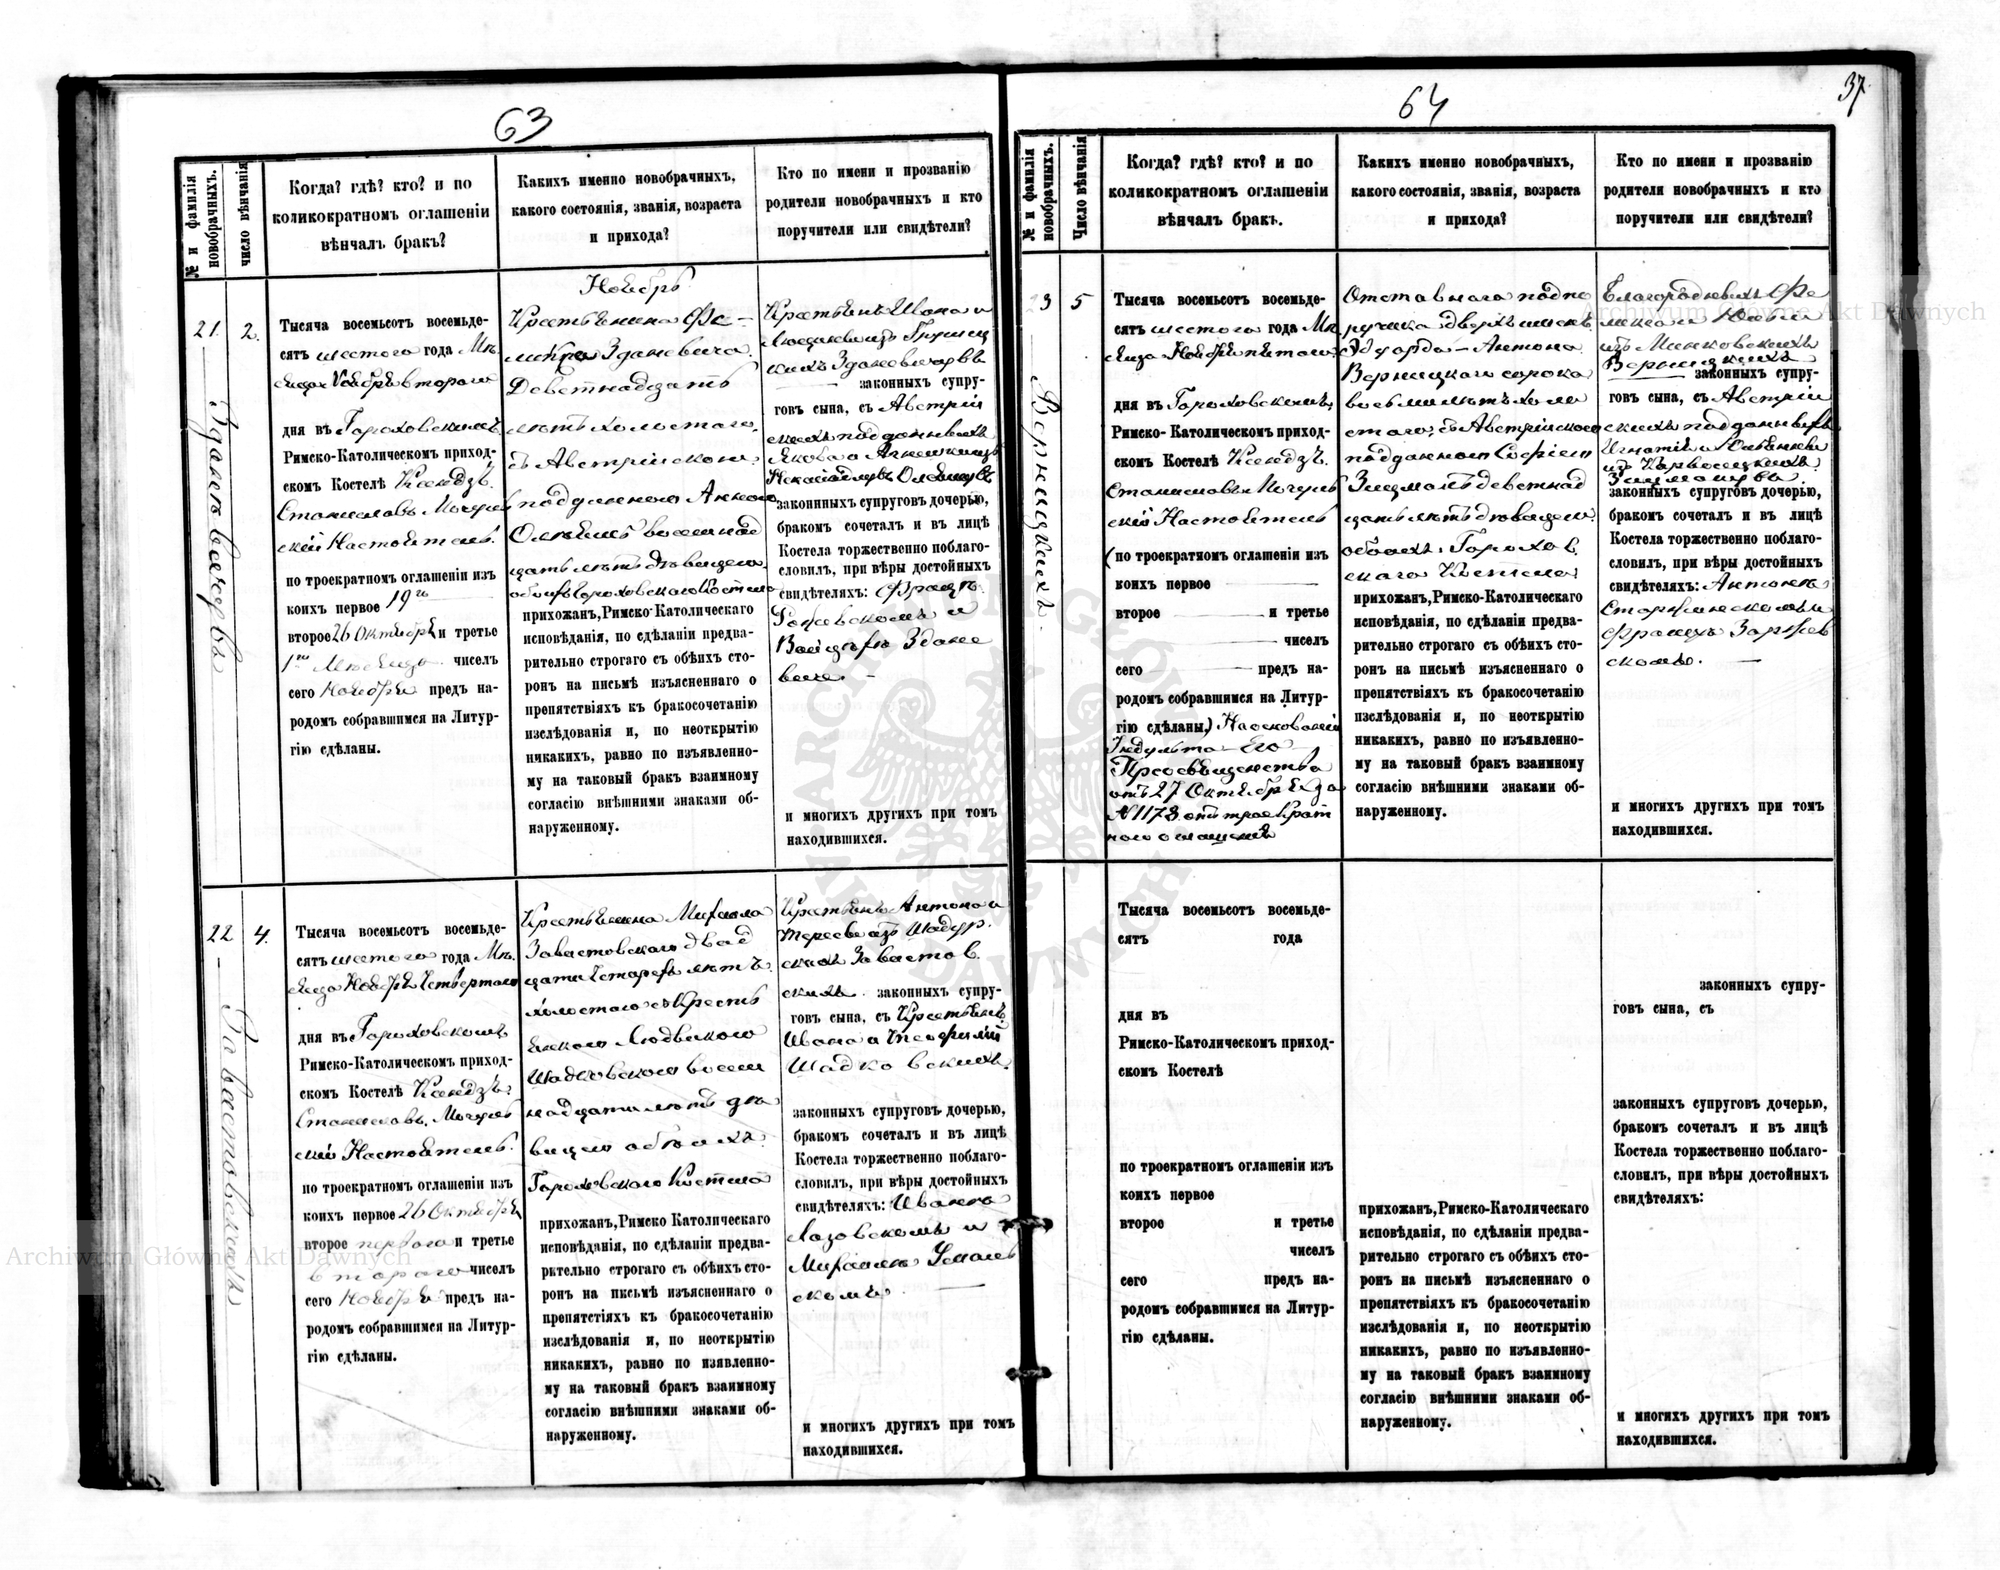 63
№ и фамилія новобрачныхъ.
число вѣнчанія
Когда? гдѣ? кто? и по
коликократномъ оглашеніи
вѣнчалъ бракъ?
Какихъ именно новобрачныхъ,
какого состоянія, званія, возраста
и прихода?
Кто по имени и прозванію
родители новобрачныхъ и кто
поручители или свидѣтели?
21.
2.
Тысяча восемьсотъ восемьде-
сятъ шестого года Мѣ-
сяца Ноября второго
дня въ Гороховскомъ
Римско-Католическомъ приход-
скомъ Костелѣ Ксендзъ
Станиславъ
скій Настоятель.
по троекратномъ оглашеніи изъ
коихъ первое 19го
второе 26 Октября и третье
1го чисел
сего Ноября предъ на-
родомъ собравшимся на Литур-
гію сдѣланы.
Ноябрь
Крестьянина
Здановича
Девятнадцать
лѣтъ холостого,
съ Австрійскою
подданною
лѣтъ дѣвицею
обоихъ Гороховского Костела
прихожан, Римско-Католическаго
исповѣданія, по сдѣланіи предва-
рительно строгаго съ обѣихъ сто-
ронъ на письмѣ изъясненнаго о
препятствіяхъ къ бракосочетанію
изслѣдованія и, по неоткрытію
никакихъ, равно по изъявленно-
му на таковый бракъ взаимному
согласію внѣшними знаками об-
наруженному.
Крестьянъ Ивана и
законныхъ супру-
говъ сына, съ Австрій
скихъ подданныхъ
Якова и Агнешки изъ
законныхъ супруговъ дочерью,
бракомъ сочеталъ и въ лицѣ
Костела торжественно поблаго-
словилъ, при вѣры достойныхъ
свидѣтеляхъ:
и многихъ другихъ при томъ
находившихся.
22
4.
Тысяча восемьсотъ восемьде-
сятъ шестого года Мѣ-
сяца Ноября Четвертого
дня въ Гороховскомъ
Римско-Католическомъ приход-
скомъ Костелѣ Ксендзъ
Станиславъ
скій Настоятель.
по троекратномъ оглашеніи изъ
коихъ первое 26 Октября
второе первого и третье
второго чиселъ
сего Ноября предъ на-
родомъ собравшимся на Литур-
гію сдѣланы.
Крестьянина Михаила
Завастовского двад
цати четырехъ лѣтъ
холостого съ Кресть
янкою
Шадковскою восем
надцати лѣтъ дѣ
вицею обоихъ
Гороховского Костела
прихожан, Римско Католическаго
исповѣданія, по сдѣланіи предва-
рктельно строгаго съ обѣихъ сто-
ронъ на пксьмѣ изъясненнаго о
препятстіяхъ къ бракосочетанію
изслѣдованія и, по неоткрытію
никакихъ, равно по изявленно-
му на таковый бракъ взаимному
согласію внѣшними знаками об-
наруженному.
Крестьянъ Антона и
Терессы изъ
скихъ Завастов
скихъ. законныхъ супру-
говъ сына, съ Крестьянъ
Ивана и Теофиліи
Шадковскихъ
законныхъ супруговъ дочерью,
бракомъ сочеталъ и въ лицѣ
Костела торжественно поблаго-
словилъ, при вѣры достойныхъ
свидѣтеляхъ: Иваномъ
Лазовскомъ и
Михаилъ
скомъ.
и многихъ другихъ при томъ
находившихся.
64
37
№ и фамилія новобрачныхъ.
Число вѣнчанія
Когда? гдѣ? кто? и по
коликократномъ оглашеніи
вѣнчалъ бракъ.
Какихъ именно новобрачныхъ,
какого состоянія, званія, возраста
и прихода?
Кто по имени и прозванію
родители новобрачныхъ и кто
поручители или свидѣтели?
23
5
Верницкихъ.
Тысяча восемьсотъ восемьде-
сятъ шестого года Мѣ
сяца Ноября пятого
дня въ Гороховскомъ
Римско-Католическомъ приход-
скомъ Костелѣ Ксендзъ
Станиславъ
скій Настоятель
(по троекратномъ оглашеніи изъ
коихъ первое
второе и третье
чиселъ
сего предъ на-
родомъ собравшимся на Литур-
гію сдѣланы.) На основаніи
Индульта Его
Преосвященства
отъ 27 Октября за
№ 1178 отъ троекрат
ного оглашенія
Отставного подпо
ручика дворянина
Эдуарда-Антона
Верницкого сорока
восьми лѣтъ холо
стого, съ Австрійскою
подданною Софіею
девятнад
цать лѣтъ дѣвицею.
обоихъ Горохов
ского Костела
прихожан, Римско-Католическаго
исповѣданія, по сдѣланіи предва-
рительно строгаго съ обѣихъ сто-
ронъ на письмѣ изъясненнаго о
препятствіяхъ къ бракосочетанію
пзслѣдованія и, по неоткрытію
никакихъ, равно по изъявленно-
му на таковый бракъ взаимному
согласію внѣшними знаками об-
наруженному.
Благородныхъ
изъ Минковскихъ
Верницкихъ
законныхъ супру-
говъ сына, съ Австрій
скихъ подданныхъ
Игнатія и
законныхъ супруговъ дочерью,
бракомъ сочеталъ и въ лицѣ
Костела торжественно поблаго-
словилъ, при вѣры достойныхъ
свидѣтеляхъ: Антонъ
скомъ.
и многихъ другихъ при томъ
находившихся.
Тысяча восемьсотъ восемьде-
сятъ года
дня въ
Римско-Католическомъ приход-
скомъ Костелѣ
по троекратномъ оглашеніи изъ
коихъ первое
второе и третье
чиселъ
сего предъ на-
родомъ собравшимся на Литур-
гію сдѣланы.
прихожан, Римско-Католическаго
исповѣданія, по сдѣланіи предва-
рительно строгаго съ обѣихъ сто-
ронъ на письмѣ изъясненнаго о
препятствіяхъ къ бракосочетанію
изслѣдованія и, по неоткрытію
никакихъ, равно по изъявленно-
му на таковый бракъ взаимному
согласію внѣшними знаками об-
наруженному.
законныхъ супру-
говъ сына, съ
законныхъ супруговъ дочерью,
бракомъ сочеталъ и въ лицѣ
Костела торжественно поблаго-
словилъ, при вѣры достойныхъ
свидѣтеляхъ:
и многихъ другихъ при томъ
находившихся.
Archiwum Główne Akt Dawnych
Archiwum Główne Akt Dawnych
ARCHIWUM GŁÓWNE AKT DAWNYCH